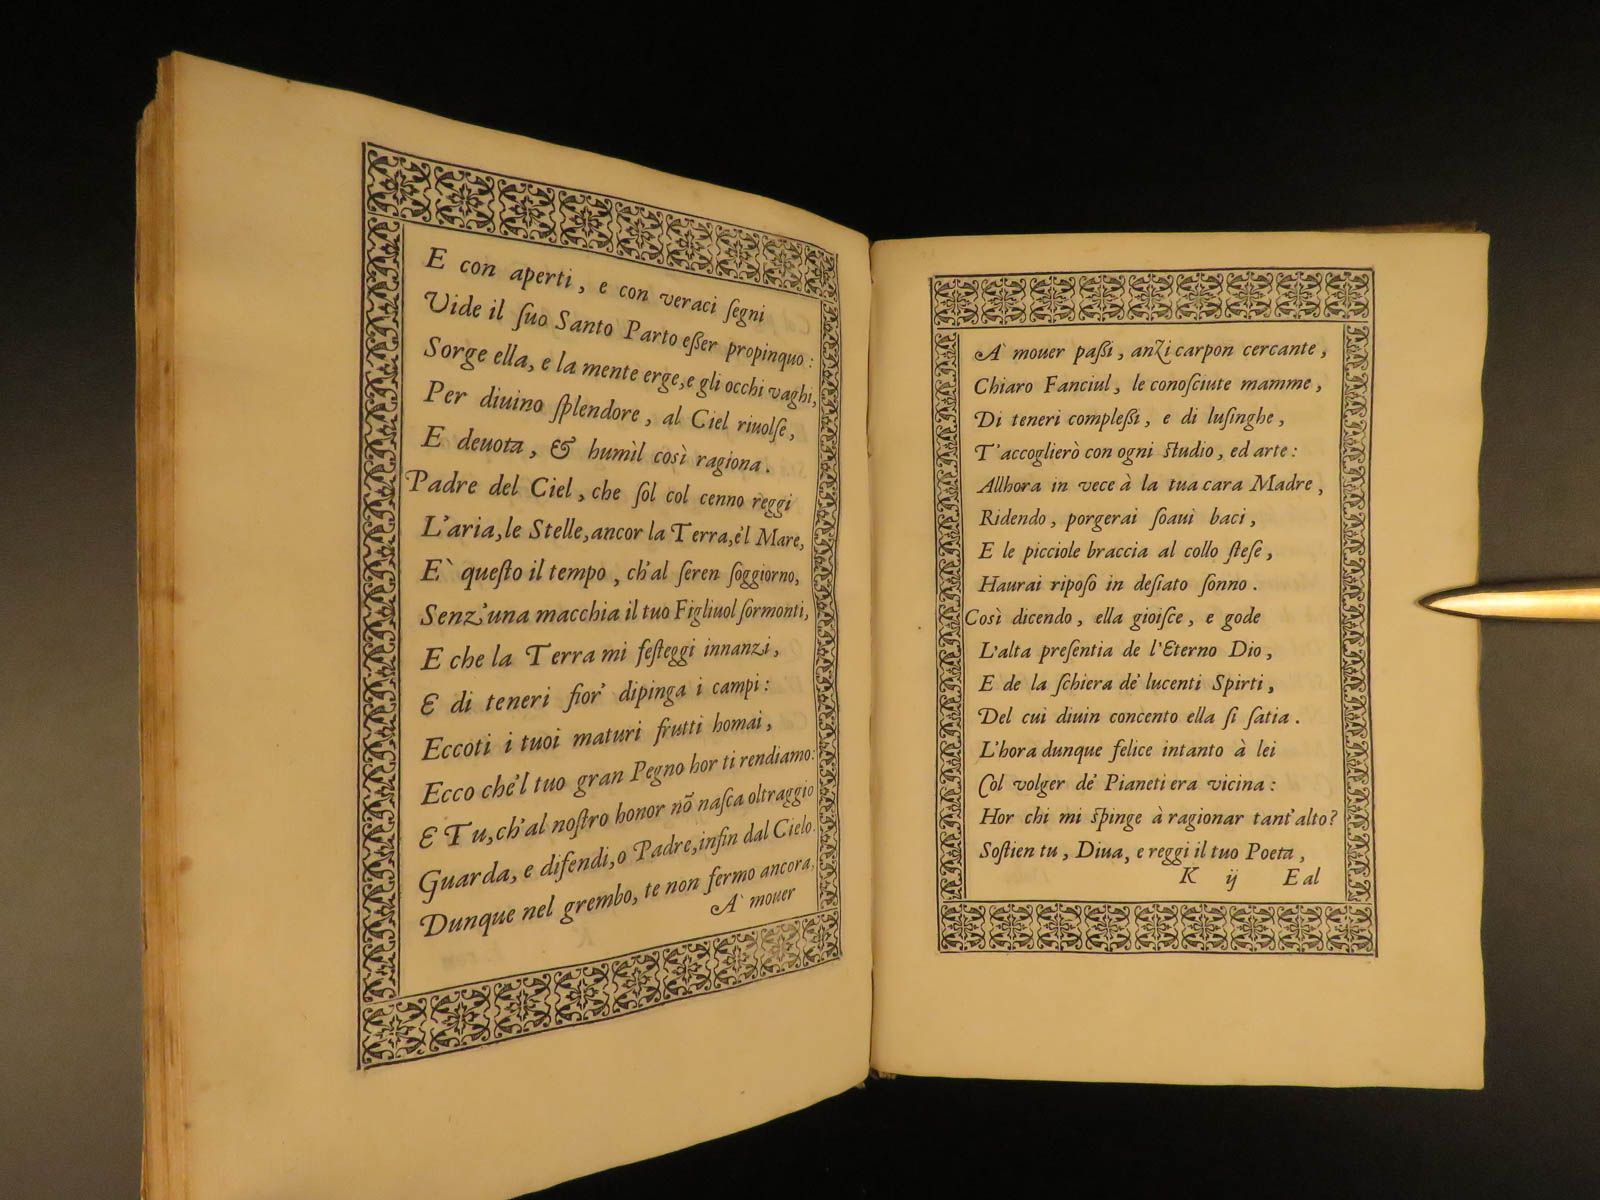 E con aperti, e con veraci ſegni
Vide il ſuo Santo Parto eſſer propinquo:
Sorge ella, e la mente erge, e gli occhi vaghi,
Per diuino ſplendore, al Ciel riuolſe,
E deuota, & humìl così ragiona.
Padre del Ciel, che ſol col cenno reggi
L'aria, le Stelle, ancor la Terra, e'l Mare,
E' queſto il tempo, ch'al ſeren ſoggiorno,
Senz'una macchia il tuo Figliuol ſormonti,
E che la Terra mi feſteggi innanzi,
E di teneri fior' dipinga i campi:
Eccoti i tuoi maturi frutti homai,
Ecco che'l tuo gran Pegno hor ti rendiamo:
E Tu, ch'al noſtro honor nõ naſca oltraggio
Guarda, e difendi, o Padre, infin dal Cielo.
Dunque nel grembo, te non fermo ancora,
A' mouer
A' mouer paſſi, anzi carpon cercante,
Chiaro Fanciul, le conoſciute mamme,
Di teneri compleſſi, e di luſinghe,
T'accoglierò con ogni ſtudio, ed arte:
Allhora in vece à la tua cara Madre,
Ridendo, porgerai ſoaui baci,
E le picciole braccia al collo ſteſe,
Haurai ripoſo in deſiato ſonno.
Così dicendo, ella gioiſce, e gode
L'alta preſentia de l'Eterno Dio,
E de la ſchiera de' lucenti Spirti,
Del cui diuin concento ella ſi ſatia.
L'hora dunque felice intanto à lei
Col volger de' Pianeti era vicina:
Hor chi mi ſpinge à ragionar tant'alto?
Soſtien tu, Diua, e reggi il tuo Poeta,
K ij E al